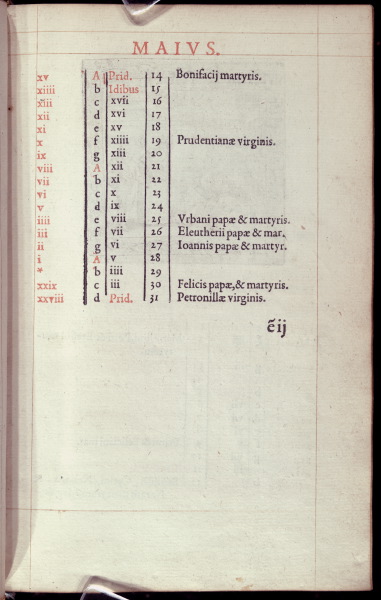 MAIVS.
xv A Prid. 14 Bonifacij martyris.
xiiii b Idibus 15
xiii c xvii 16
xii d xvi 17
xi e xv 18
x f xiiii 19 Prudentianæ virginis.
ix g xiii 20
viii A xii 21
vii b xi 22
vi c x 23
v d ix 24
iiii e viii 25 Vrbani papæ & martyris.
iii f vii 26 Eleutherii papæ & mar.
ii g vi 27 Ioannis papæ & martyr.
i A v 28
* b iiii 29
xxix c iii 30 Felicis papæ, & martyris.
xxviii d Prid. 31 Petronillæ virginis.
ẽ ij